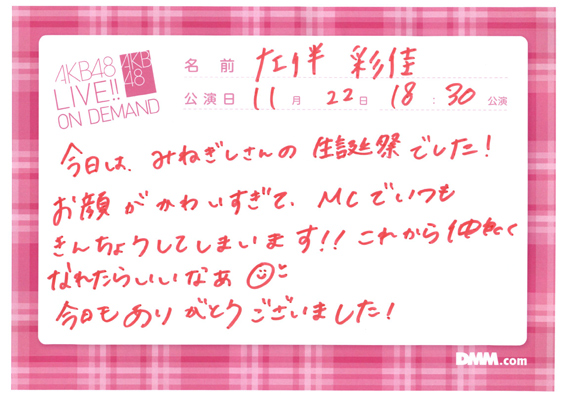 AKB48
LIVE!!
ON DEMAND
AKB
48
名前 左伴 彩佳
公演日 11月 22日 18:30公演
今日は、みねぎしさんの 生誕祭でした!
お顔がかわいすぎて、MCでいつも
きんちょうしてしまいます!! これから仲良く
なれたらいいなあ
今日もありがとうございました!
DMM.com